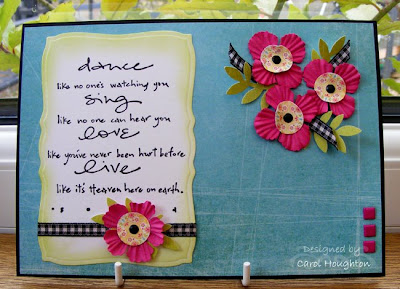 dance
like no one's watching you
sing
like no one can hear you
love
like you've never been hurt before
live
like it's Heaven here on earth.
Designed by
Carol Houghton